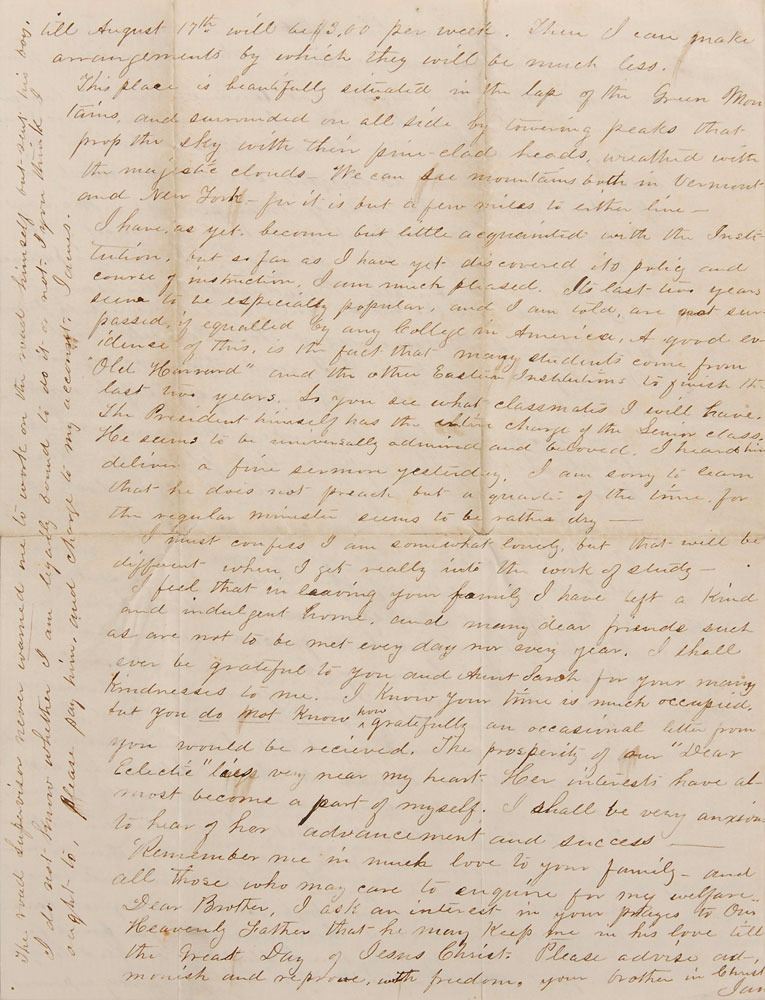 till August 17th will be $3,00 per week. Then I can make
arrangements by which they will be much less.
This place is beautifully situated in the lap of the Green Moun
tains, and surrounded on all side by towering peaks that
prop the sky with their pine-clad heads, wreathed with
the majestic clouds - We can see mountains both in Vermont
and New York - for it is but a few miles to either line -
I have, as yet, become but little acquainted with the Insti-
tution, but so far as I have yet discovered its policy and
course of instruction, I am much pleased. Its last two years
seem to be especially popular, and I am told, are not sur-
passed, if equalled by any College in America. A good ev-
idense of this, is the fact that many students come from
"Old Harvard" and the other Eastern Institutions to finish the
last two years. So you see what classmates I will have.
The President himself has the entire charge of the Senior class.
He seems to be universally admired and beloved. I heard him
deliver a fine sermon yesterday. I am sorry to learn
that he does not preach but a quarter of the time, for
the regular minister seems to be rather dry —
I must confess I am somewhat lonely, but that will be
different when I get really into the work of study -
I feel that in leaving your family I have left a kind
and indulgent home, and many dear friends such
as are not to be met every day nor every year. I shall
ever be grateful to you and Aunt Sarah for your many
kindnesses to me. I know your time is much occupied,
but you do not know how gratefully an occasional letter from
you would be recieved. The prosperity of our "Dear
Eclectic" lies very near my heart. Her interests have al-
most become a part of myself. I shall be very anxious
to hear of her advancement and success —
Remember me in much love to your family - and
all those who may care to enquire for my welfare.
Dear Brother, I ask an interest in your prayers to Our
Heavenly Father that he may keep me in his love till
the Great Day of Jesus Christ. Please advise ad-
monish and reprove, with freedom, your brother in Christ
Jam
The road supervisor never warned me to work on the road himself but sent his boy.
I do not know whether I am legally bound to do it or not. If you think I
ought to, please pay him, and charge to my account. James.